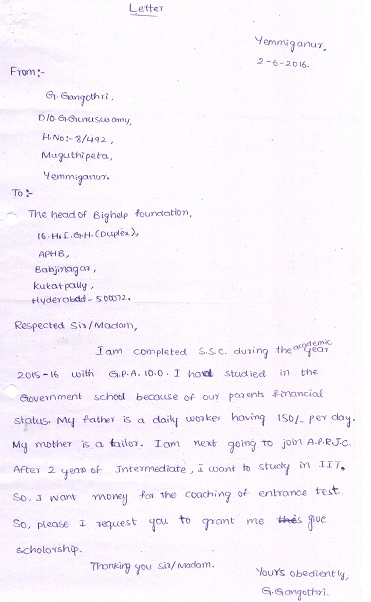 Letter
Yemmiganur,
2-6-2016.
From:-
G. Gangothri,
D/O G.Gunuswamy,
H.No:- 8/492,
Muguthipeta,
Yemmiganur.
To:-
The head of Bighelp foundation,
16.H.I.G.H.(Duplex),
APHB,
Babjinagar,
Kukatpally,
Hyderabad - 500072.
Respected Sir/Madam,
I am completed S.S.C. during the academic year
2015-16 with G.P.A. 10.0. I had studied in the
Government school because of our parents financial
status. My father is a daily worker having 150/- per day.
My mother is a tailor. I am next going to join A.P.R.J.C.
After 2 years of Intermediate, i want to study in IIT.
So, I want money for the coaching of entrance test.
So, please I request you to grant me this give
scholorship.
Thanking you Sir/Madam.
Yours obediently,
G.Gangothri.